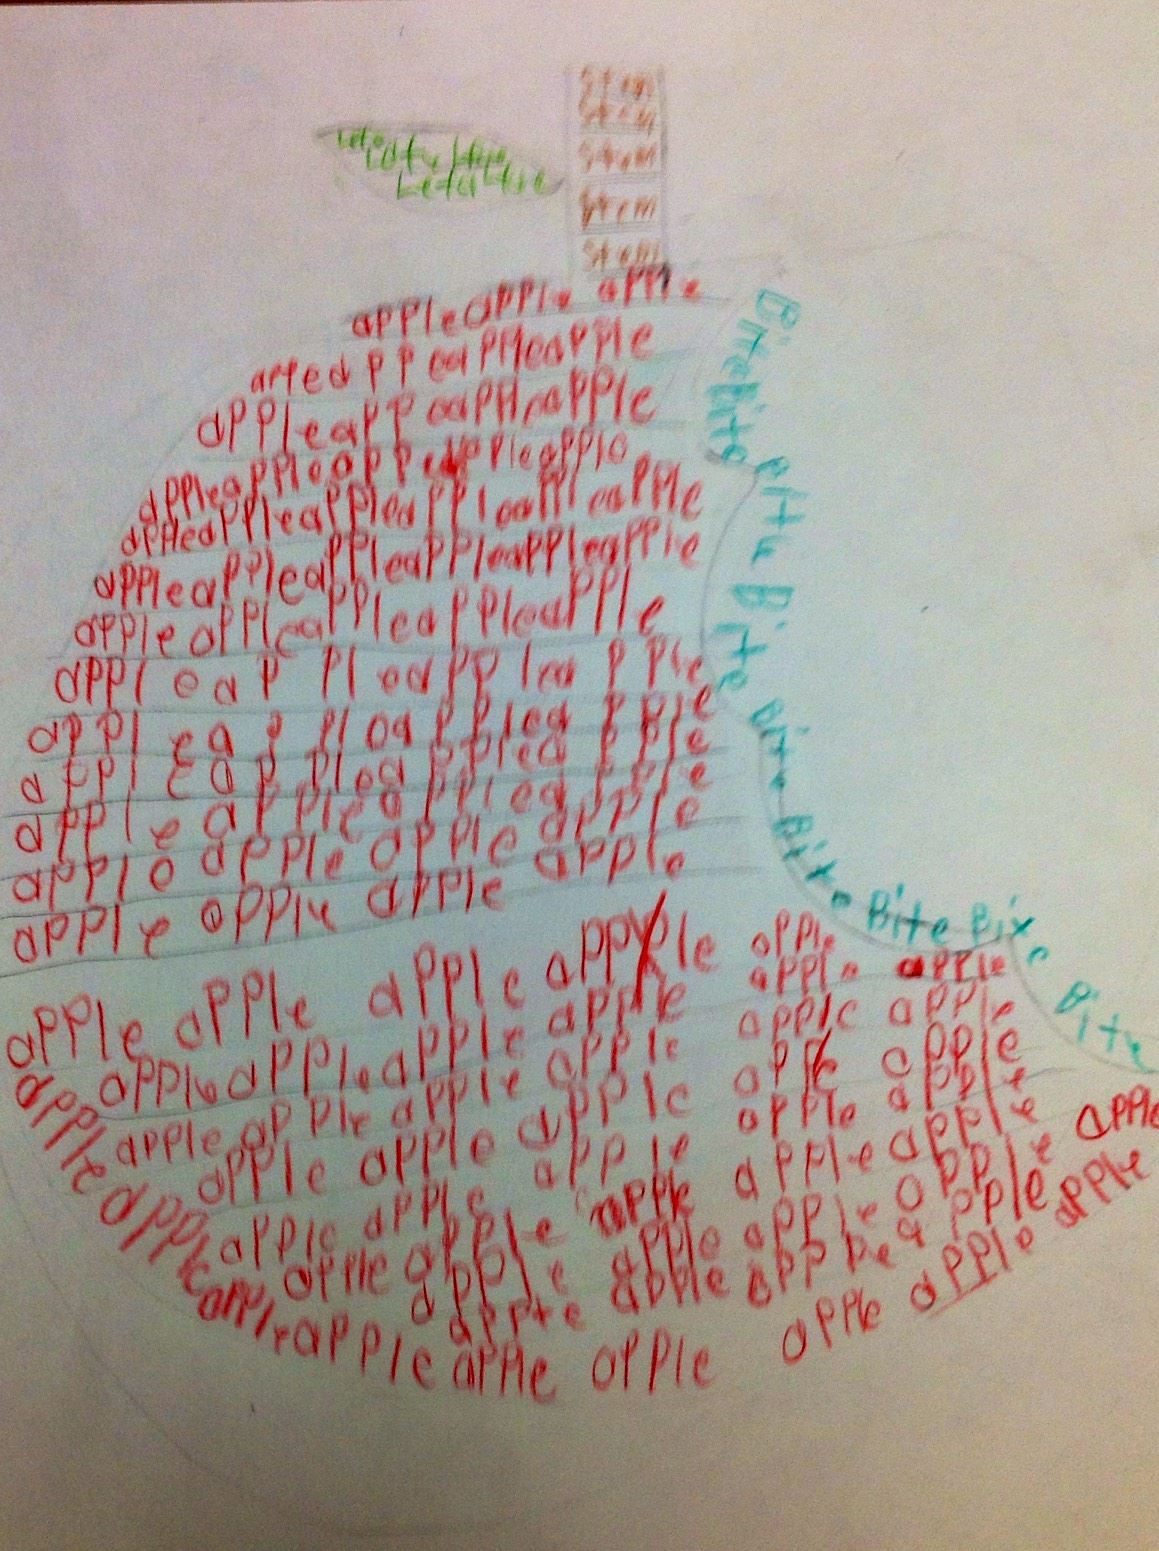 Stem
Stem
Stem
Stem
Stem
apple apple apple
appleappleapple
appleappleapple
appleappleappleapple
appleappleappleappleappleapple
appleappleappleappleappleapple
appleappleappleappleapple
appleappleappleapple
appleappleappleapple
appleappleappleapple
appleappleappleapple
apple apple apple apple
apple apple apple apple
apple apple apple apple apple
apple apple
apple apple apple apple apple apple
apple apple apple apple apple
apple apple apple apple apple
apple apple apple apple apple
apple apple apple apple apple
apple apple apple apple
apple apple apple apple
apple apple apple apple apple apple apple apple apple apple
BiteBite Bite Bite Bite Bite Bite Bite Bite